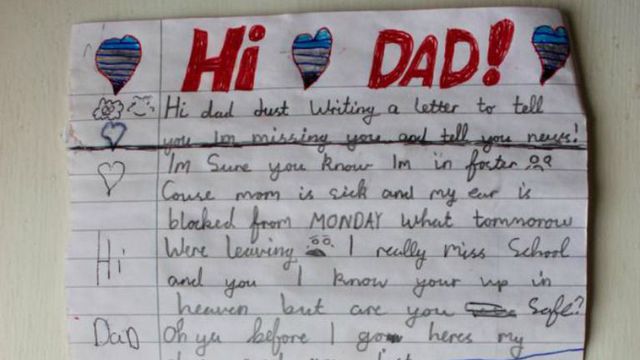 Hi DAD!
Hi dad Just Writing a letter to tell
you Im missing you and tell you news!
Im Sure you know Im in foster
Couse mom is sick and my ear is
blocked from MONDAY What tommorow
Hi Were leaving I really miss School
and you I know your up in
heaven but are you Safe?
DaD Oh ya before I go heres my